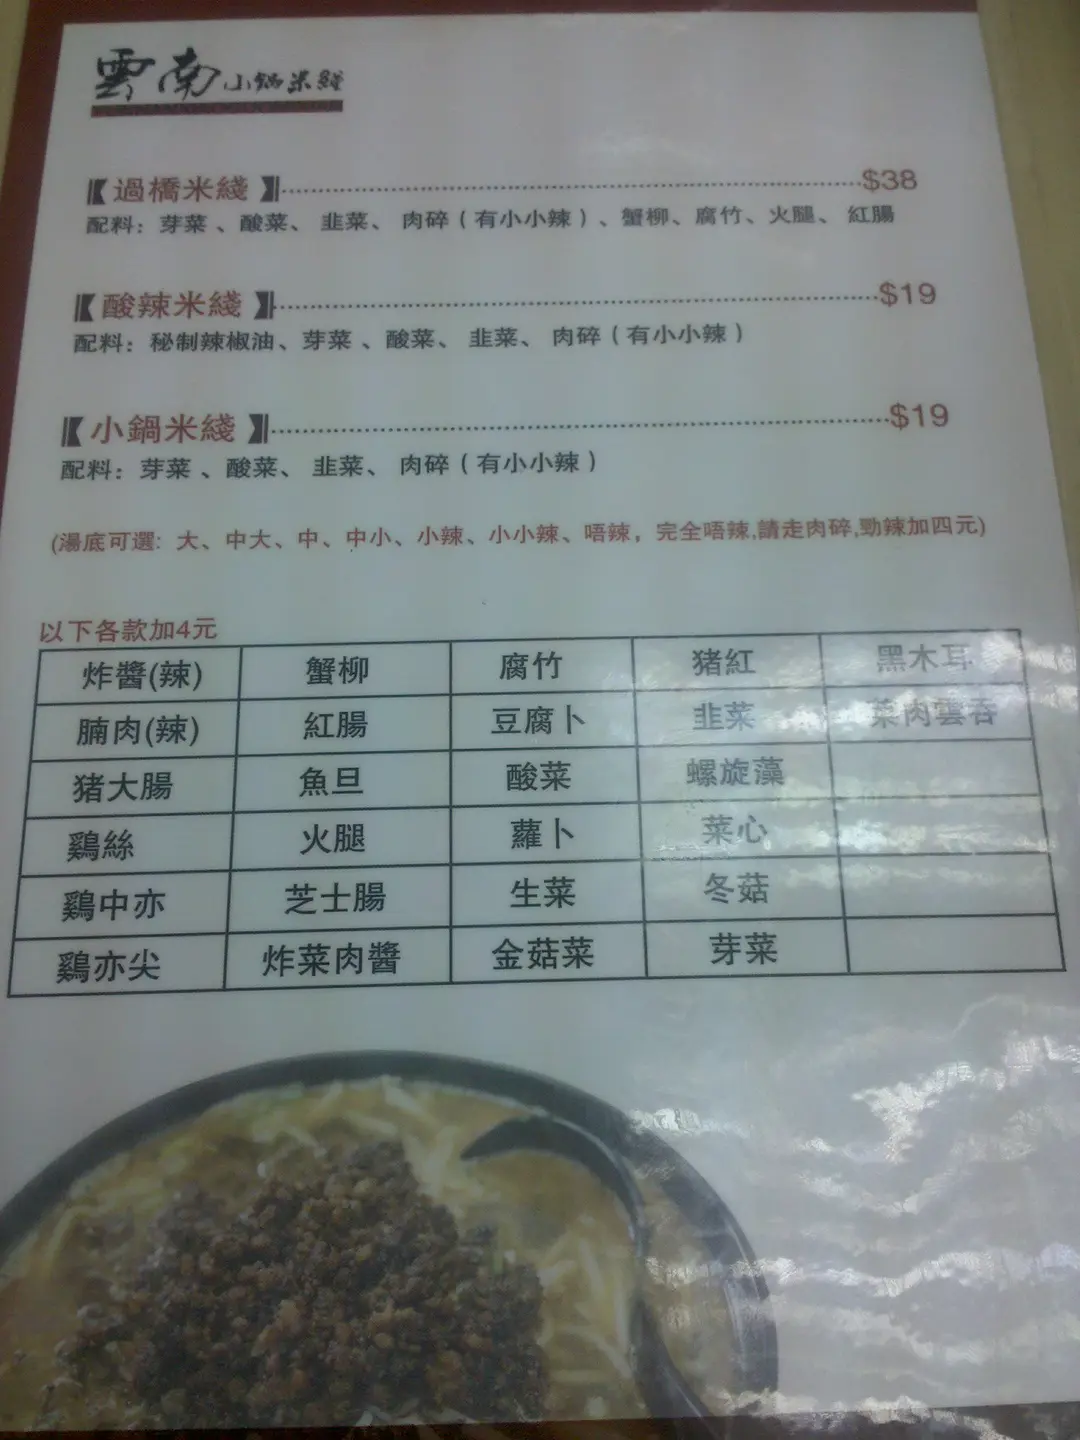 雲南小鍋米綫
【過橋米綫】 $38
配料：芽菜、酸菜、韭菜、肉碎（有小小辣）、蟹柳、腐竹、火腿、紅腸
【酸辣米綫】 $19
配料：秘制辣椒油、芽菜、酸菜、韭菜、肉碎（有小小辣）
【小鍋米綫】 $19
配料：芽菜、酸菜、韭菜、肉碎（有小小辣）
(湯底可選: 大、中大、中、中小、小辣、小小辣、唔辣，完全唔辣,請走肉碎,勁辣加四元)
以下各款加4元
炸醬(辣) 蟹柳 腐竹 猪紅 黑木耳
腩肉(辣) 紅腸 豆腐卜 韭菜 菜肉雲吞
猪大腸 魚旦 酸菜 螺旋藻
鷄絲 火腿 蘿卜 菜心
鷄中亦 芝士腸 生菜 冬菇
鷄亦尖 炸菜肉醬 金菇菜 芽菜